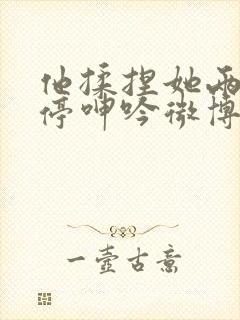 他揉捏她两
停呻吟微博
一壶古意